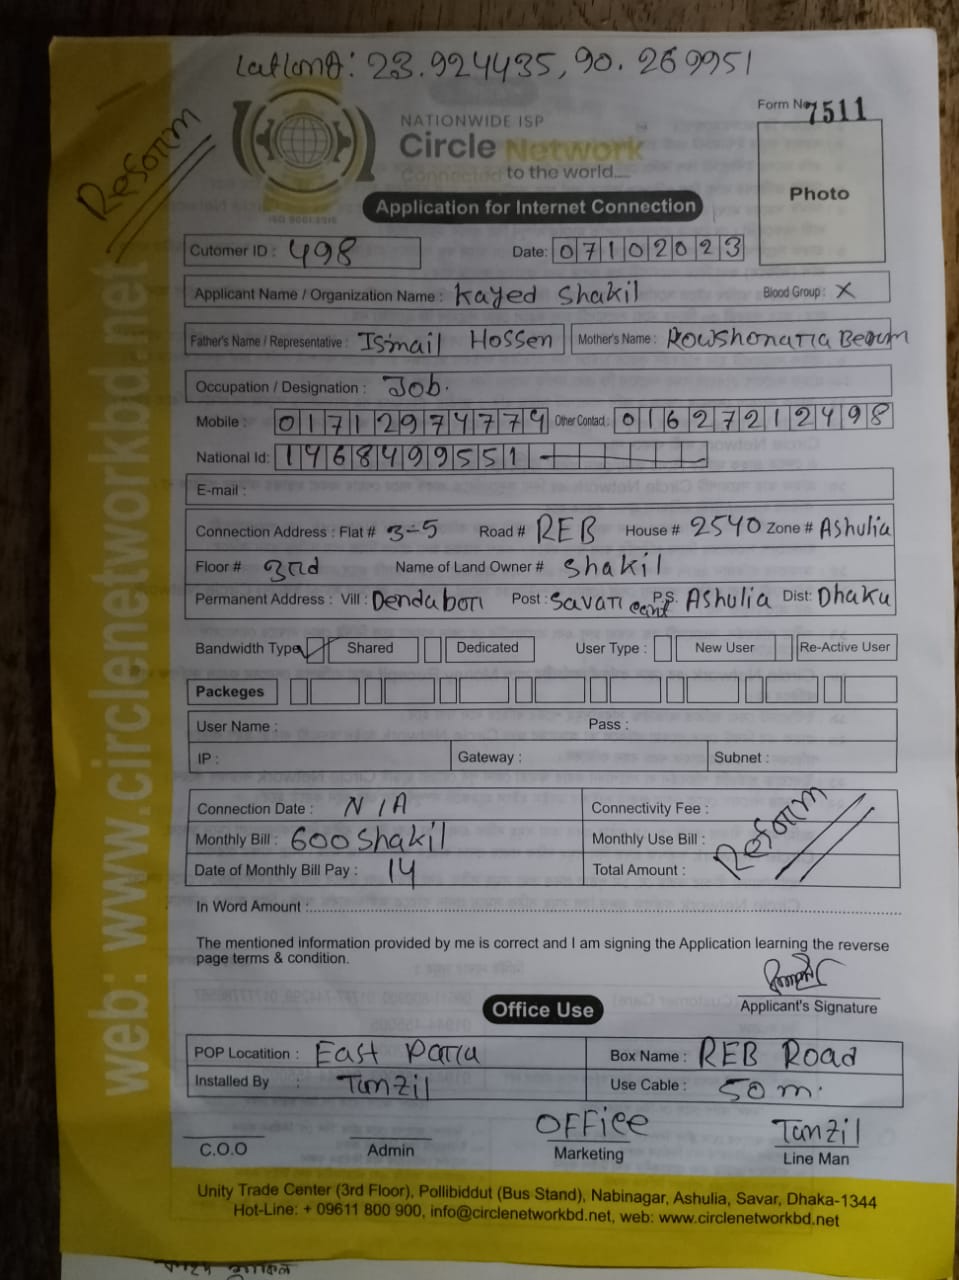 Latlong: 23.924435, 90.269951
Reform
Form No 7511
NATIONWIDE ISP
Circle Network
Connected to the world...
ISO 9001:2015
Photo
Application for Internet Connection
Cutomer ID : 498 Date: 07102023
Applicant Name / Organization Name : Kayed Shakil Blood Group : X
Father's Name / Representative : Ismail Hossen Mother's Name : Rowshonara Begum
Occupation / Designation : Job.
Mobile : 01712974774 Other Contact : 01627212498
National Id: 1468499551
E-mail :
Connection Address : Flat # 3-5 Road # REB House # 2540 Zone # Ashulia
Floor # 3rd Name of Land Owner # Shakil
Permanent Address : Vill : Dendabor Post : Savar cant P.S. Ashulia Dist: Dhaka
Bandwidth Type Shared Dedicated User Type : New User Re-Active User
Packeges
User Name : Pass :
IP : Gateway : Subnet :
Connection Date : N/A Connectivity Fee :
Monthly Bill : 600 Shakil Monthly Use Bill : Reform
Date of Monthly Bill Pay : 14 Total Amount :
In Word Amount :
The mentioned information provided by me is correct and I am signing the Application learning the reverse
page terms & condition.
Applicant's Signature
Office Use
POP Locatition : East Para Box Name : REB Road
Installed By : Tanzil Use Cable : 50 m.
OFFice Tanzil
C.O.O Admin Marketing Line Man
Unity Trade Center (3rd Floor), Pollibiddut (Bus Stand), Nabinagar, Ashulia, Savar, Dhaka-1344
Hot-Line: + 09611 800 900, info@circlenetworkbd.net, web: www.circlenetworkbd.net
web: www.circlenetworkbd.net